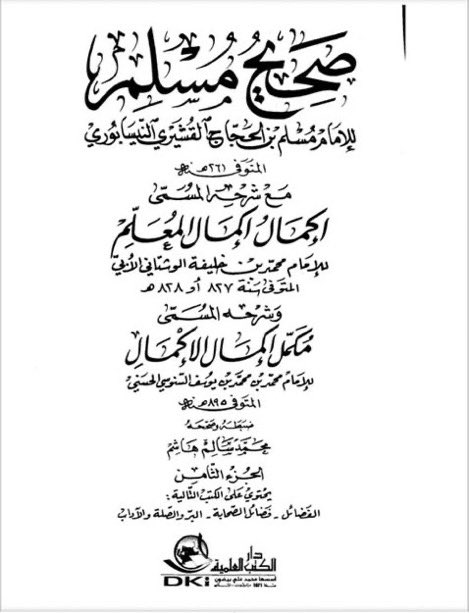 صَحِيحُ مُسْلِمٍ
للإمام مسلم بن الحجاج القشيري النيسابوري
المتوفى ٢٦١ هـ
مع شرحه المسمى
إكمال إكمال المعلم
للإمام محمد بن خليفة الوشتاني الأبي
المتوفى سنة ٨٢٧ أو ٨٢٨ هـ
وشرحه المسمى
مكمل إكمال الإكمال
للإمام محمد بن محمد بن يوسف السنوسي الحسني
المتوفى ٨٩٥ هـ
ضبطه وصححه
محمد سالم هاشم
الجزء الثامن
يحتوي على الكتب التالية:
الفضائل - فضائل الصحابة - البر والصلة والآداب
دار
الكتب العلمية
DKi
أسسها محمد علي بيضون